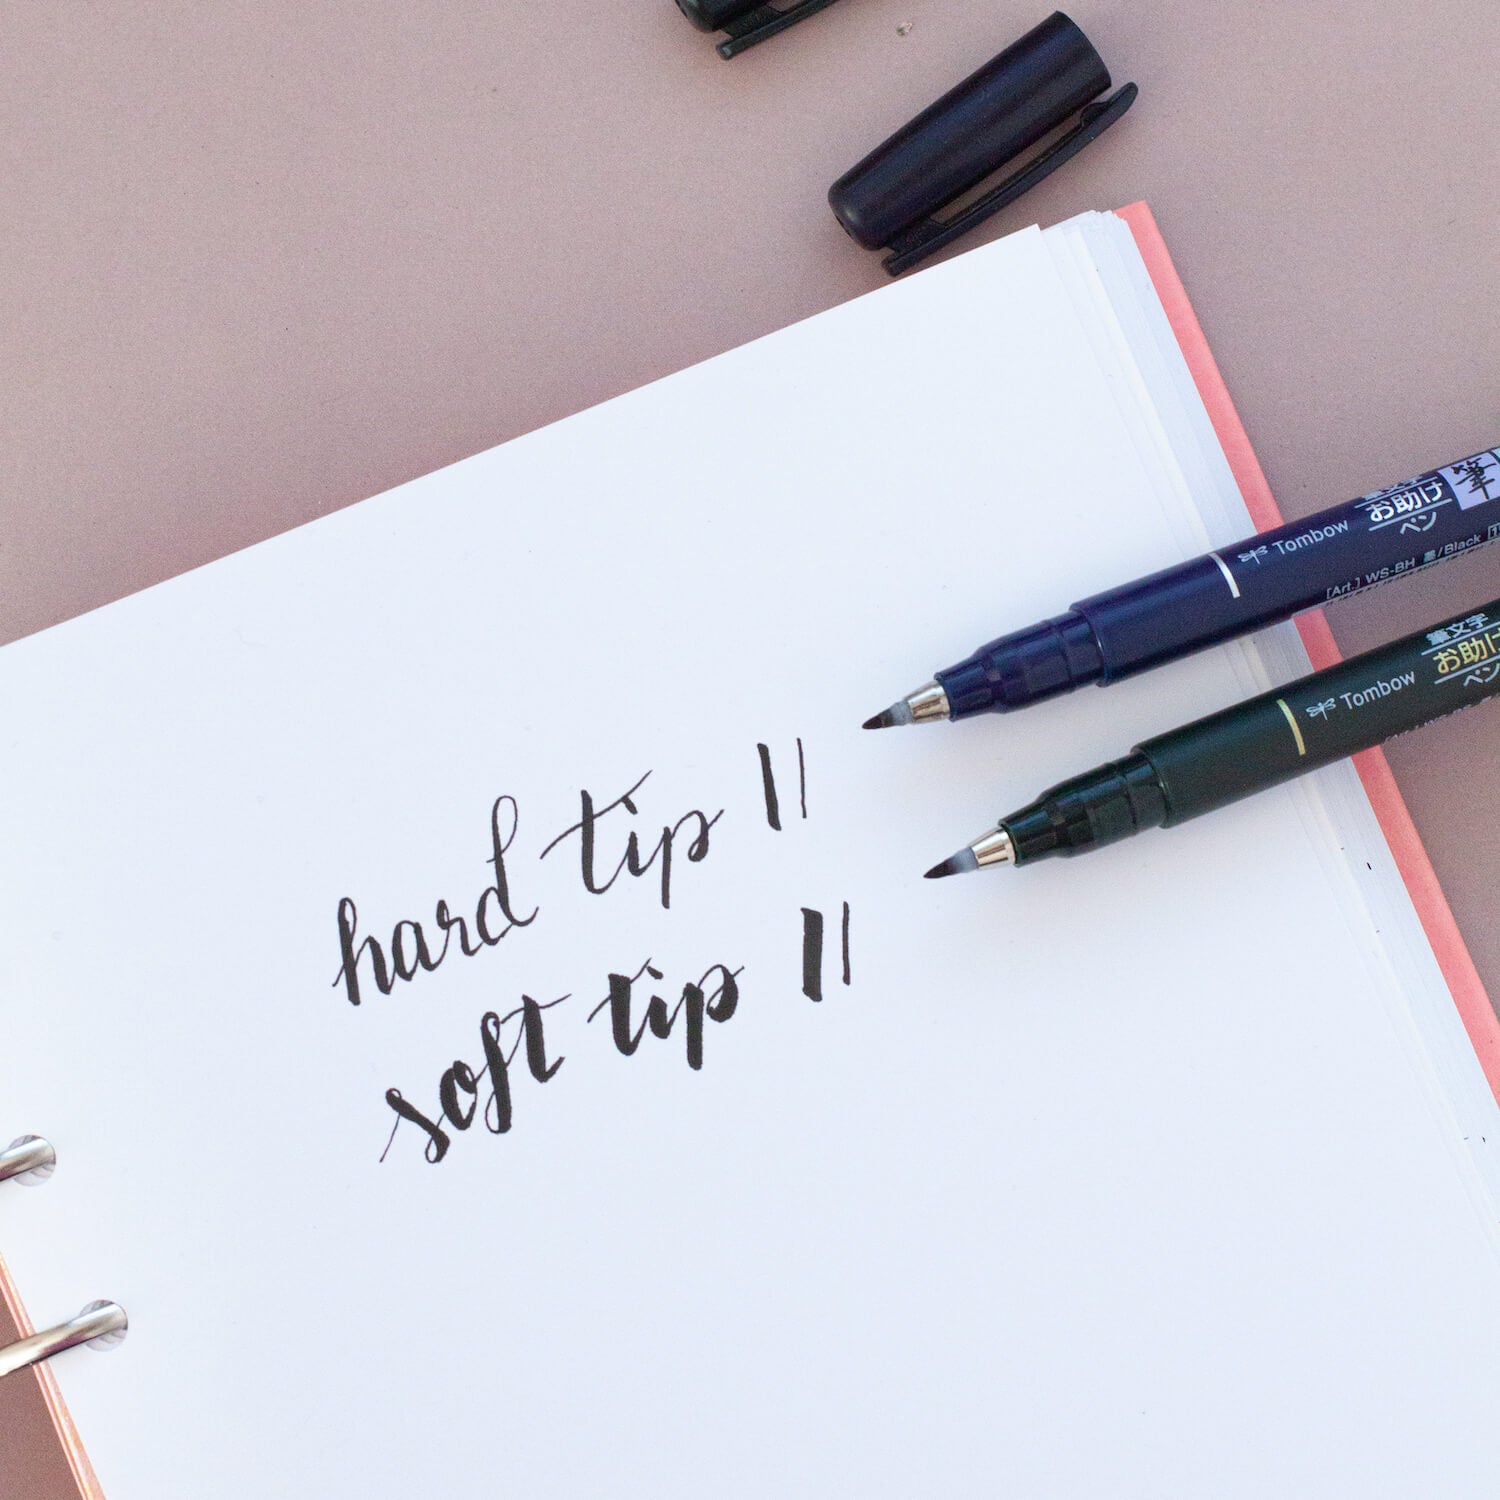 hard tip
soft tip
筆
お助け
ペン
Tombow
[Art.] WS-BH 墨/Black
筆文字
お助け
ペン
Tombow